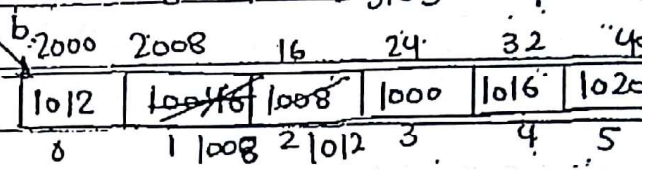 b 2000 2008 16 24 32
1012 1008 1000 1016 1020
0 1 1008 2 1012 3 4 5